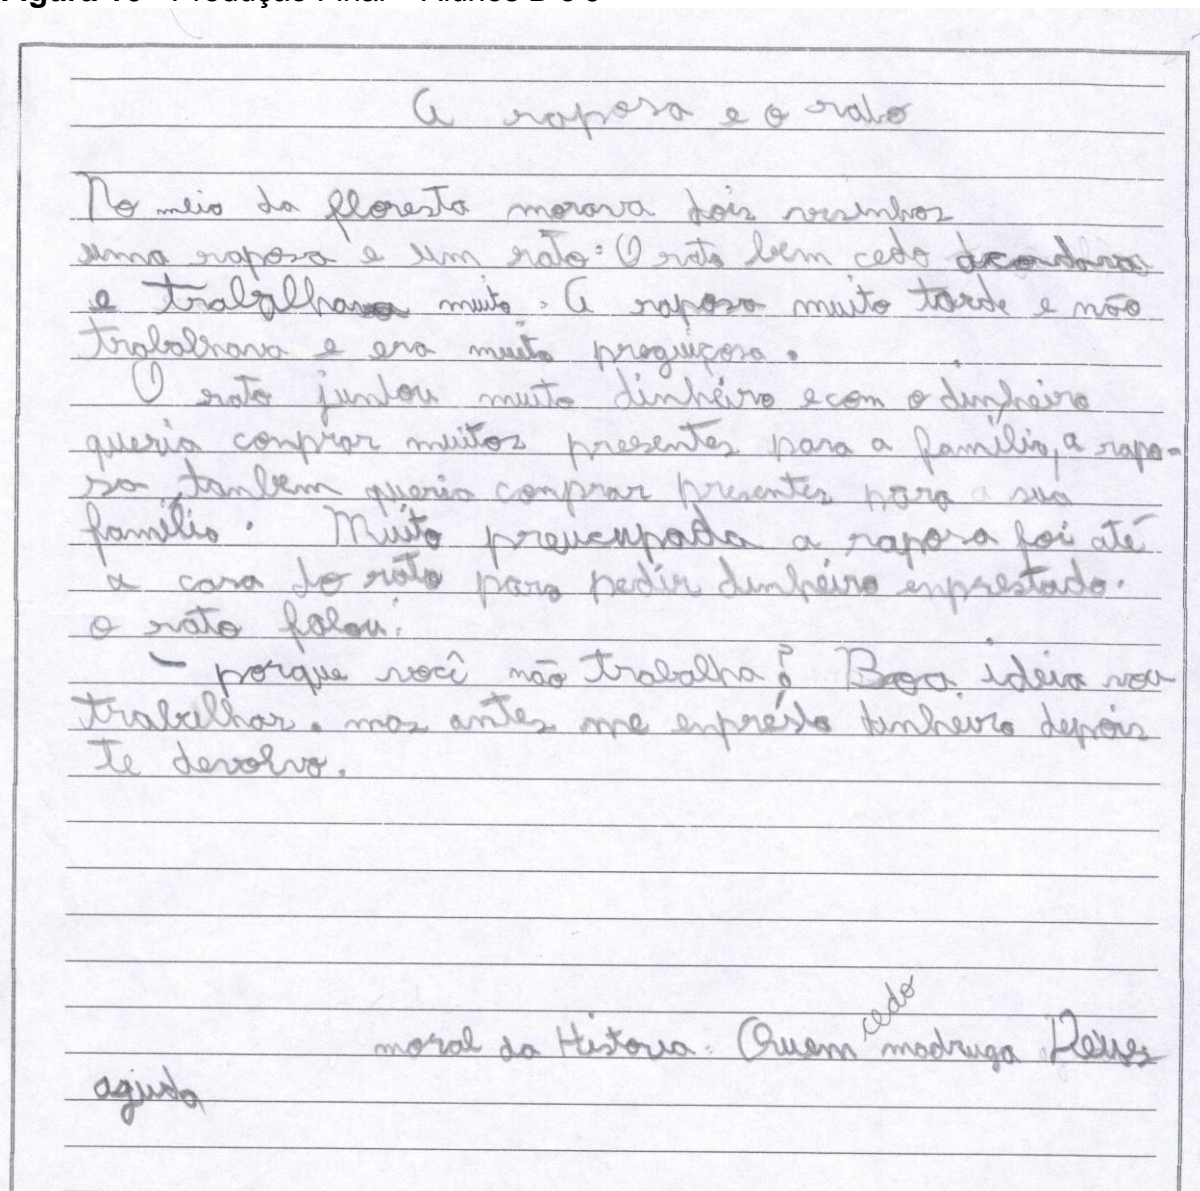 A raposa e o rato
No meio da floresta morava dois vesinhos
uma raposa e um rato: O rato bem cedo acordava
e trabalhava muito. A raposa muito tarde e não
trabalhava e era muito preguiçosa.
O rato juntou muito dinheiro e com o dinheiro
queria conprar muitos presentes para a família, a rapo-
sa tanbem queria conprar presentes para a sua
família. Muito preucupada a raposa foi até
a casa do rato para pedir dinheiro enprestado.
o rato falou:
- porque você não trabalha? Boa ideia vou
trabilhar. mas antes me enprésta dinheiro depois
te devolvo.
cedo
moral da Historia. Quem madruga Deus
aguda